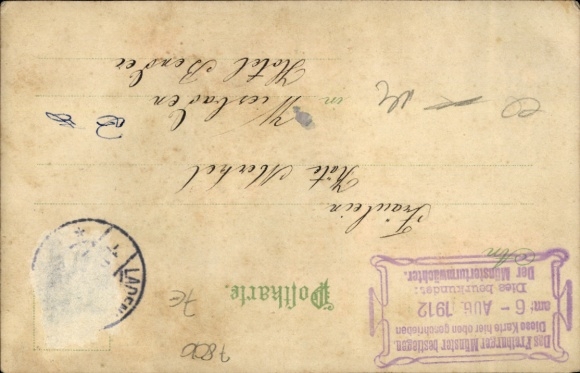 Das Freiburger Münster bestiegen.
Diese Karte hier oben geschrieben
am: 6 - AUG. 1912
Dies beurkundet:
Der Münsterturmwächter.
Postkarte.
An
Fräulein
Käte Merkel
in Wiesbaden
Hotel Bender
LADEN
7c